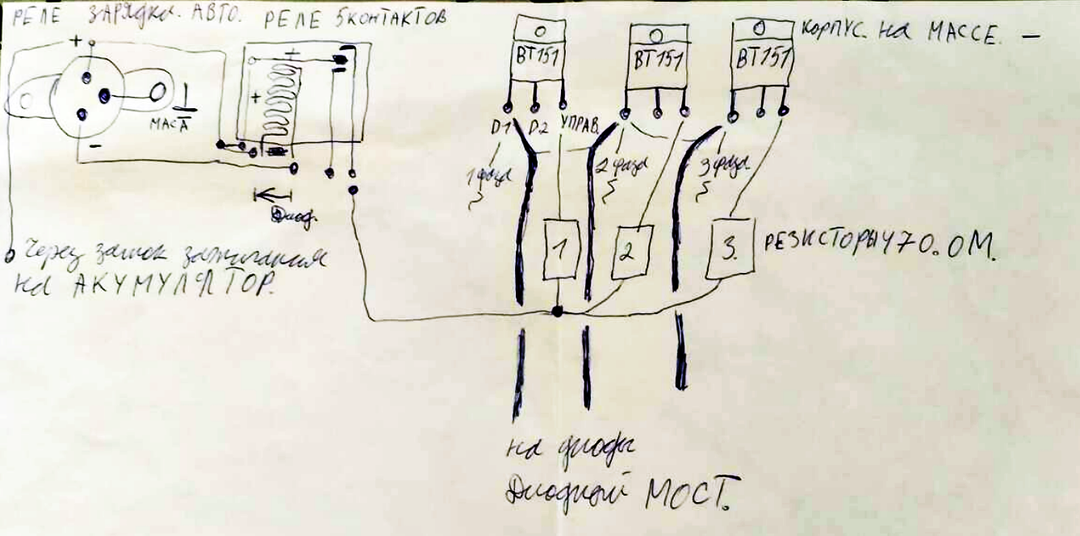 РЕЛЕ ЗАРЯДКИ. АВТО. РЕЛЕ 5КОНТАКТОВ
КОРПУС. НА МАССЕ. −
ВТ151 ВТ151 ВТ151
+
+
+
−
МАСА
D1 D2 УПРАВ.
1 фаза
2 фаза
3 фаза
Диод.
Через замок зажигания
на АКУМУЛЯТОР.
1 2 3.
РЕЗИСТОРЫ 470. ОМ.
на диоды
Диодный МОСТ.